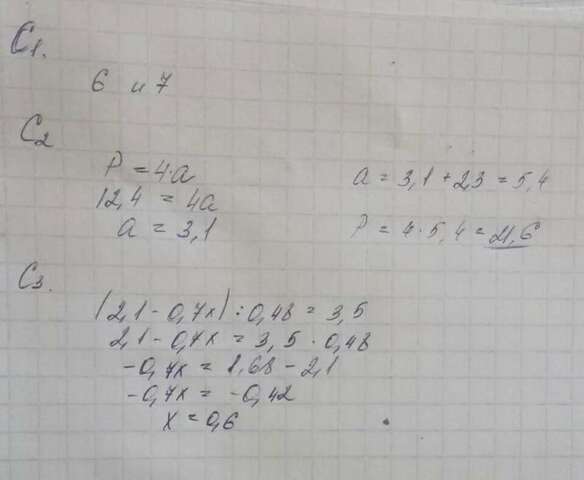 C1.
6 и 7
C2
P = 4·a
12,4 = 4a
a = 3,1
a = 3,1 + 2,3 = 5,4
P = 4·5,4 = 21,6
C3.
(2,1 - 0,7x) : 0,48 = 3,5
2,1 - 0,7x = 3,5 · 0,48
-0,7x = 1,68 - 2,1
-0,7x = -0,42
x = 0,6